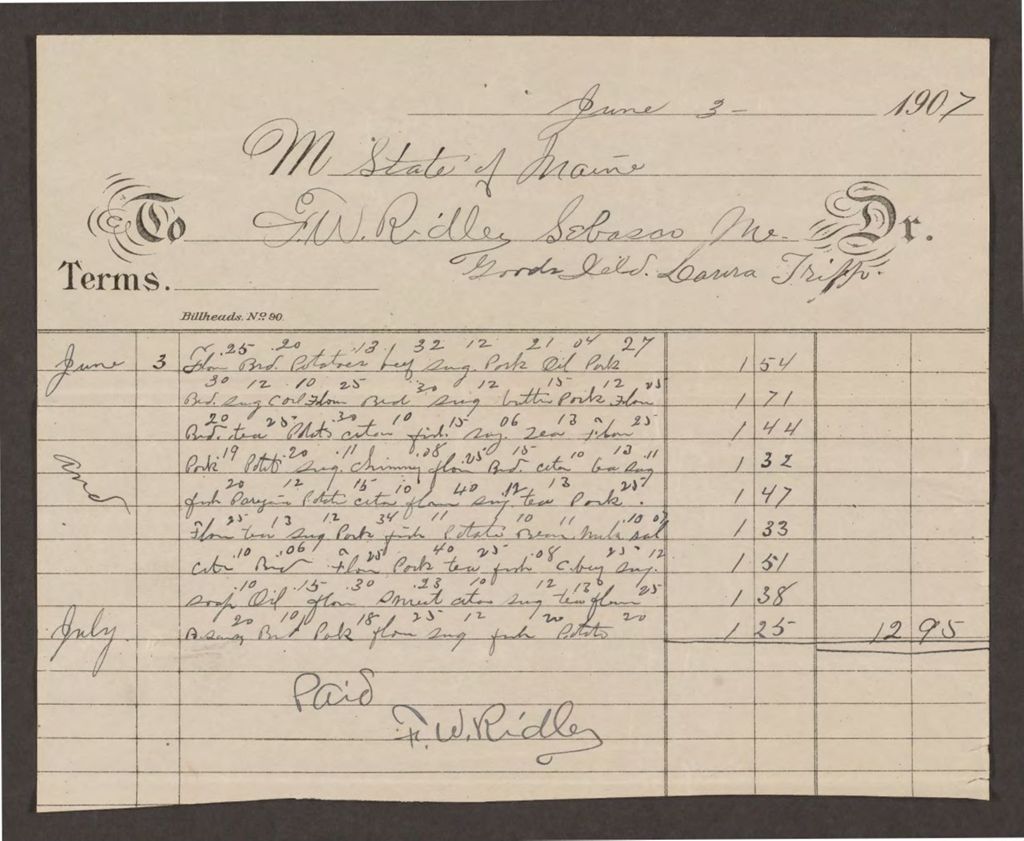 June 3 - 1907
M State of Maine
To F.W. Ridley Sebasco Me. Dr.
Terms. Goods Deld. Laura Tripp.
Billheads. No. 90.
.25 .20 .13 32 12 21 04 27
June 3 Flour Brd. Potatoes beef sug Pork Oil Pork 1 54
30 12 .10 25 30 12 15 12 25
Bed. sug Flour Bed sug butter Pork Flour 1 71
20 25 .30 10 .15 .06 13 25
Bed. tea Potats fish. sug. Tea Flour 1 44
19 .20 .11 .08 .25 15 10 13 .11
and Pork Potats sug. chimny flour Bed. tea sug 1 32
20 12 15 10 40 .12 13 25
fish Potats flour sug tea Pork. 1 47
25 13 12 34 11 10 11 .10 07
Flour tea sug Pork fish Potats Bean. milk sal 1 33
.10 .06 25 40 25 .08 25 12
Bred Flour Pork tea fish sug. 1 51
10 .15 .30 .23 10 12 13 25
soap Oil flour sug tea flour 1 38
20 10 18 25 12 20 20
July. Brd Pork flour sug fish Potats 1 25 12 95
Paid
F. W. Ridley